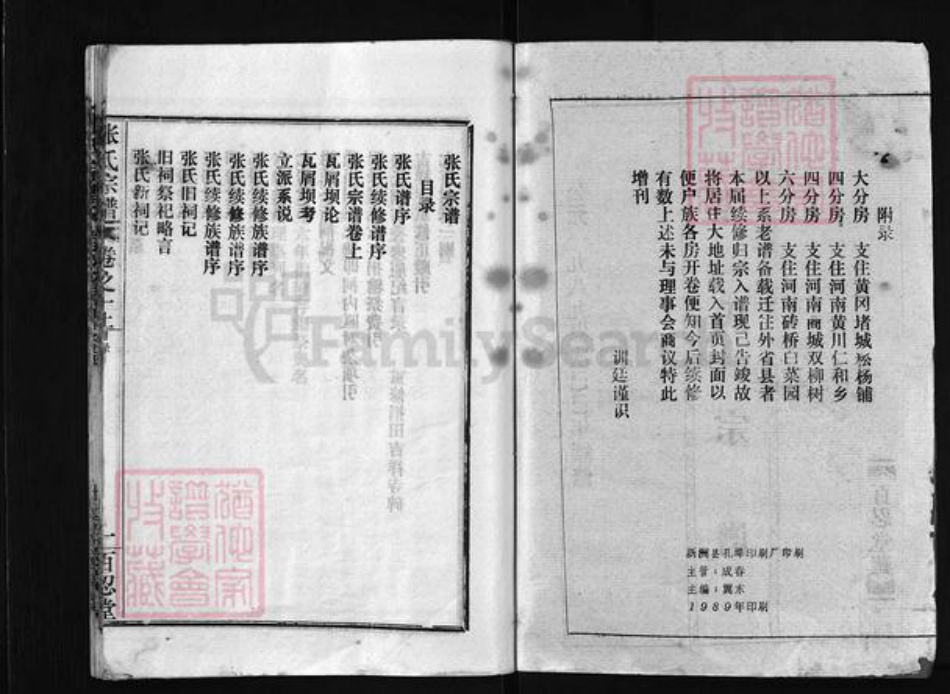 附录
大分房 支住黄冈堵城松杨铺
四分房 支住河南黄川仁和乡
四分房 支住河南商城双柳树
六分房 支住河南砖桥白菜园
以上系老谱备载迁往外省县者
本届续修归宗入谱现已告竣故
将居住大地址载入首页封面以
便户族各房开卷便知今后续修
有数上述未与理事会商议特此
增刊
训廷谨识
新洲县孔埠印刷厂印刷
主管：成春
主编：冀东
1989年印刷
张氏宗谱
目录
张氏谱序
张氏续修谱序
张氏宗谱卷上
瓦屑坝论
瓦屑坝考
立派系说
张氏续修族谱序
张氏续修族谱序
张氏续修族谱序
张氏旧祠记
旧祠祭祀略言
张氏新祠记
张氏宗谱
卷之
百忍堂
FamilySear